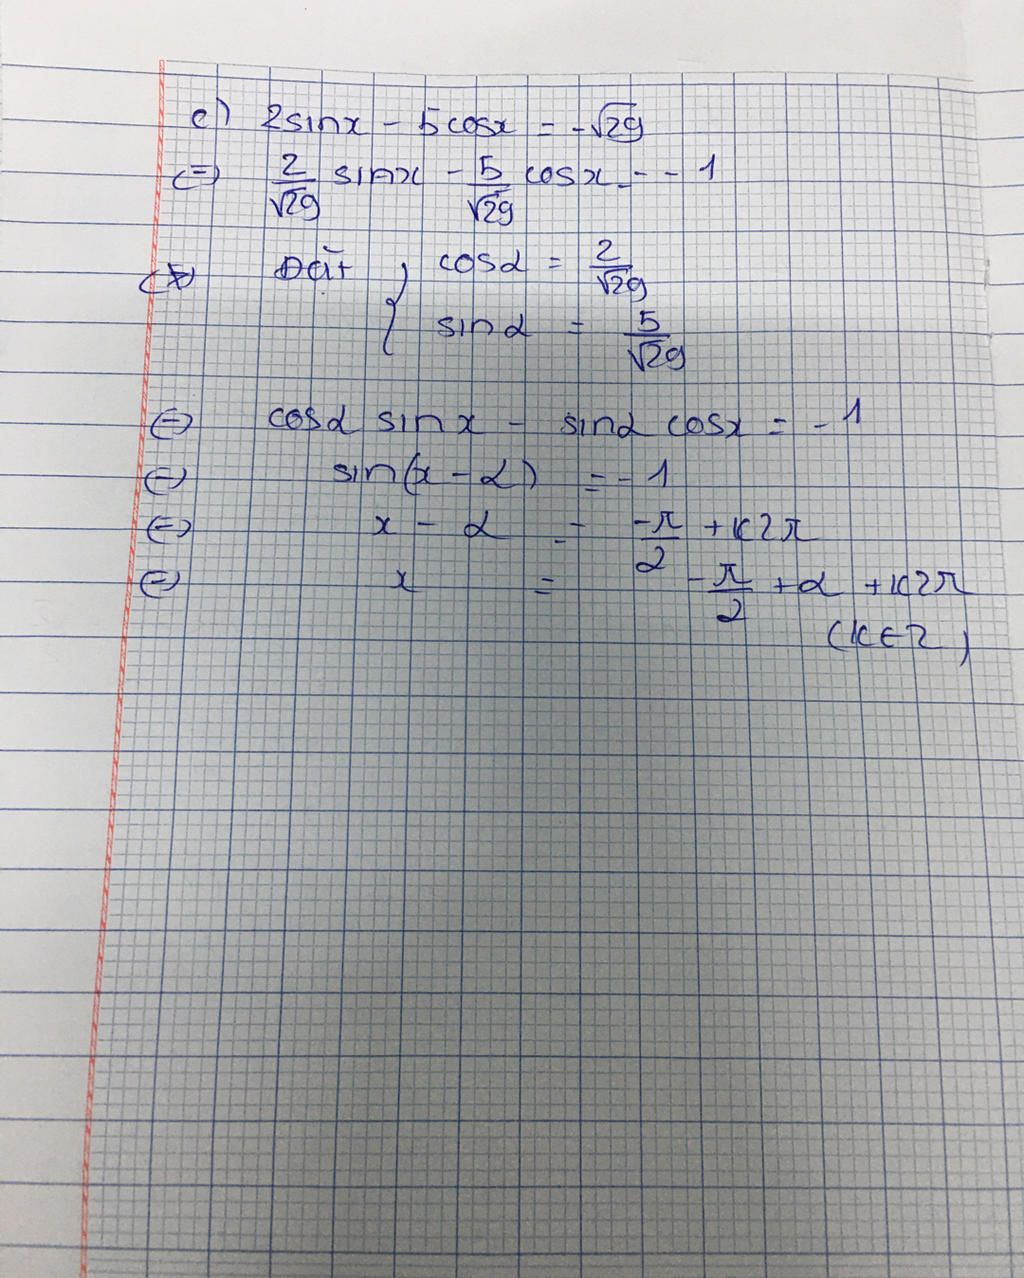 c) 2sinx - 5cosx = -√29
(=) 2/√29 sinx - 5/√29 cosx = -1
Đặt { cosα = 2/√29
sinα = 5/√29
(=) cosα sinx - sinα cosx = -1
(=) sin(x - α) = -1
(=) x - α = -π/2 + k2π
(=) x = -π/2 + α + k2π
(k∈Z)